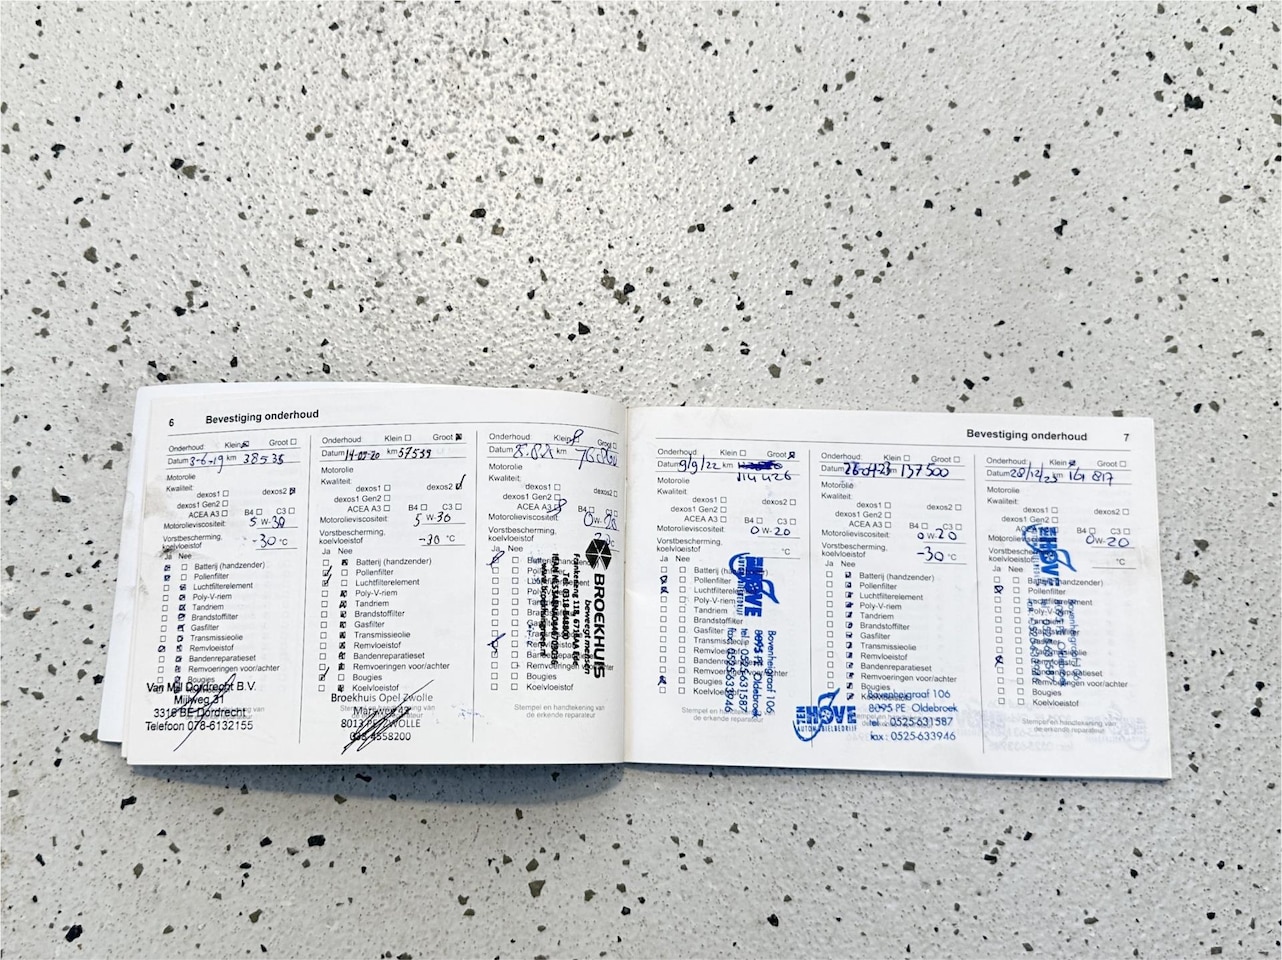 6 Bevestiging onderhoud
Onderhoud: Klein Groot
Datum 3-6-19 km 38535
Motorolie
Kwaliteit:
dexos1 dexos2
dexos1 Gen2
ACEA A3 B4 C3
Motorolieviscositeit:
5 W-30
Vorstbescherming,
koelvloeistof
-30 °C
Ja Nee
Batterij (handzender)
Pollenfilter
Luchtfilterelement
Poly-V-riem
Tandriem
Brandstoffilter
Gasfilter
Transmissieolie
Remvloeistof
Bandenreparatieset
Remvoeringen voor/achter
Bougies
Koelvloeistof
Van Mill Dordrecht B.V.
Mijlweg 31
3316 BE Dordrecht
Telefoon 078-6132155
Onderhoud: Klein Groot
Datum 14-05-20 km 57539
Motorolie
Kwaliteit:
dexos1 dexos2
dexos1 Gen2
ACEA A3 B4 C3
Motorolieviscositeit:
5 W-30
Vorstbescherming,
koelvloeistof
-30 °C
Ja Nee
Batterij (handzender)
Pollenfilter
Luchtfilterelement
Poly-V-riem
Tandriem
Brandstoffilter
Gasfilter
Transmissieolie
Remvloeistof
Bandenreparatieset
Remvoeringen voor/achter
Bougies
Koelvloeistof
Broekhuis Opel Zwolle
Marsweg
ZWOLLE
4558200
Onderhoud: Klein Groot
Datum km
Motorolie
Kwaliteit:
dexos1 dexos2
dexos1 Gen2
ACEA A3
Motorolieviscositeit:
Vorstbescherming,
koelvloeistof
Ja Nee
Remvoeringen voor/achter
Bougies
Koelvloeistof
BROEKHUIS
beweegt mensen
Stempel en handtekening van
de erkende reparateur
Bevestiging onderhoud 7
Onderhoud: Klein Groot
Datum 9/9/22 km
114426
Motorolie
Kwaliteit:
dexos1 dexos2
dexos1 Gen2
ACEA A3 B4 C3
Motorolieviscositeit:
0 W-20
Vorstbescherming,
koelvloeistof
°C
Ja Nee
Batterij (handzender)
Pollenfilter
Luchtfilterelement
Poly-V-riem
Tandriem
Brandstoffilter
Gasfilter
Transmissieolie
Remvloeistof
Bandenreparatieset
Remvoeringen voor/achter
Bougies
Koelvloeistof
HOVE
AUTOMOBIELBEDRIJF
Bovenheigraaf 106
8095 PE Oldebroek
tel : 0525-631587
fax : 0525-633946
Onderhoud: Klein Groot
Datum km 137500
Motorolie
Kwaliteit:
dexos1 dexos2
dexos1 Gen2
ACEA A3 B4 C3
Motorolieviscositeit:
0 W-20
Vorstbescherming,
koelvloeistof
-30 °C
Ja Nee
Batterij (handzender)
Pollenfilter
Luchtfilterelement
Poly-V-riem
Tandriem
Brandstoffilter
Gasfilter
Transmissieolie
Remvloeistof
Bandenreparatieset
Remvoeringen voor/achter
Bougies
Koelvloeistof
TEN HOVE
AUTOMOBIELBEDRIJF
Bovenheigraaf 106
8095 PE Oldebroek
tel : 0525-631587
fax : 0525-633946
Onderhoud: Klein Groot
Datum 28/12/23 km 161 817
Motorolie
Kwaliteit:
dexos1 dexos2
dexos1 Gen2
ACEA A3 B4 C3
Motorolieviscositeit:
0 W-20
Vorstbescherming,
koelvloeistof
°C
Ja Nee
Batterij (handzender)
Pollenfilter
Luchtfilterelement
Poly-V-riem
Tandriem
Brandstoffilter
Gasfilter
Transmissieolie
Remvloeistof
Bandenreparatieset
Remvoeringen voor/achter
Bougies
Koelvloeistof
HOVE
Stempel en handtekening van
de erkende reparateur